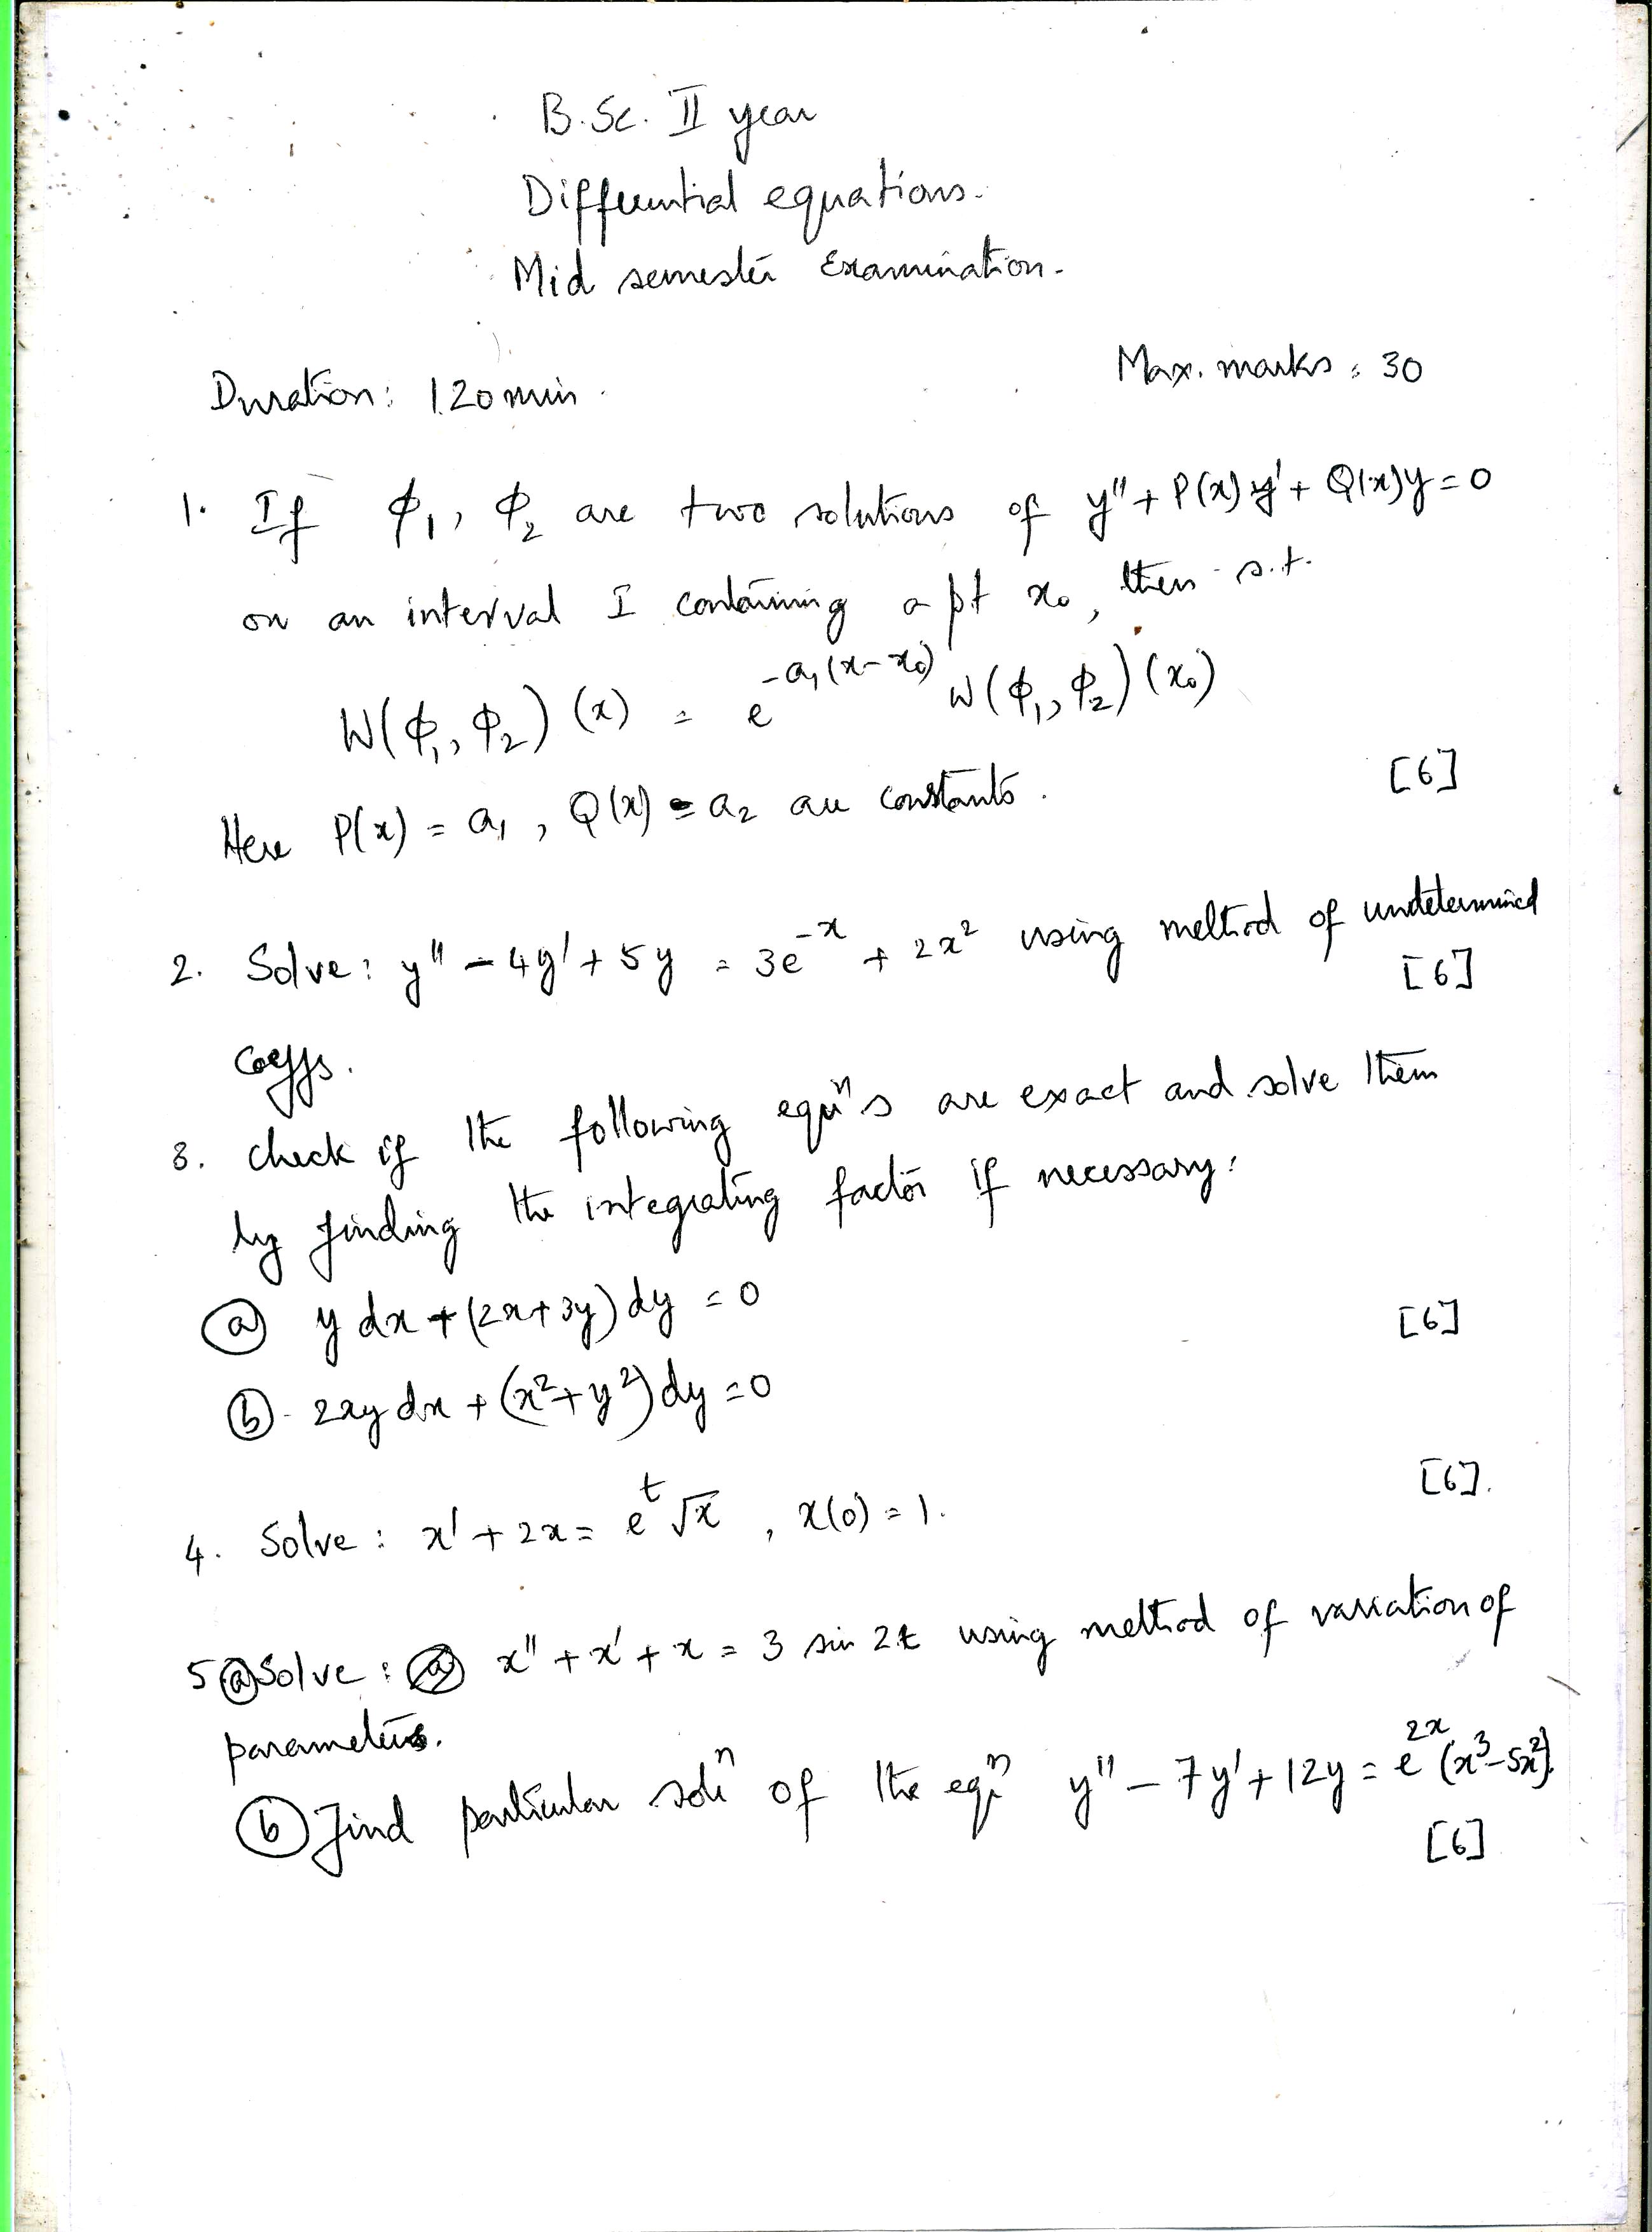 B.Sc. II year
Differential equations.
Mid semester Examination.
Max. marks : 30
Duration: 120 min.
1. If ϕ₁, ϕ₂ are two solutions of y'' + P(x) y' + Q(x)y = 0
on an interval I containing a pt x₀, then s.t.
W(ϕ₁, ϕ₂) (x) = e^{-a₁(x-x₀)} W(ϕ₁, ϕ₂) (x₀)
[6]
Here P(x) = a₁, Q(x) = a₂ are constants.
2. Solve: y'' - 4y' + 5y = 3e^{-x} + 2x² using method of undetermined
[6]
coeffs.
3. check if the following equⁿs are exact and solve them
by finding the integrating factor if necessary:
(a) y dx + (2x+3y) dy = 0
[6]
(b) 2xy dx + (x²+y²) dy = 0
[6].
4. Solve : x' + 2x = e^t √x , x(0) = 1.
5 (a) Solve : x'' + x' + x = 3 sin 2t using method of variation of
parameters.
(b) Find particular solⁿ of the eqⁿ y'' - 7y' + 12y = e^{2x} (x³-5x²).
[6]